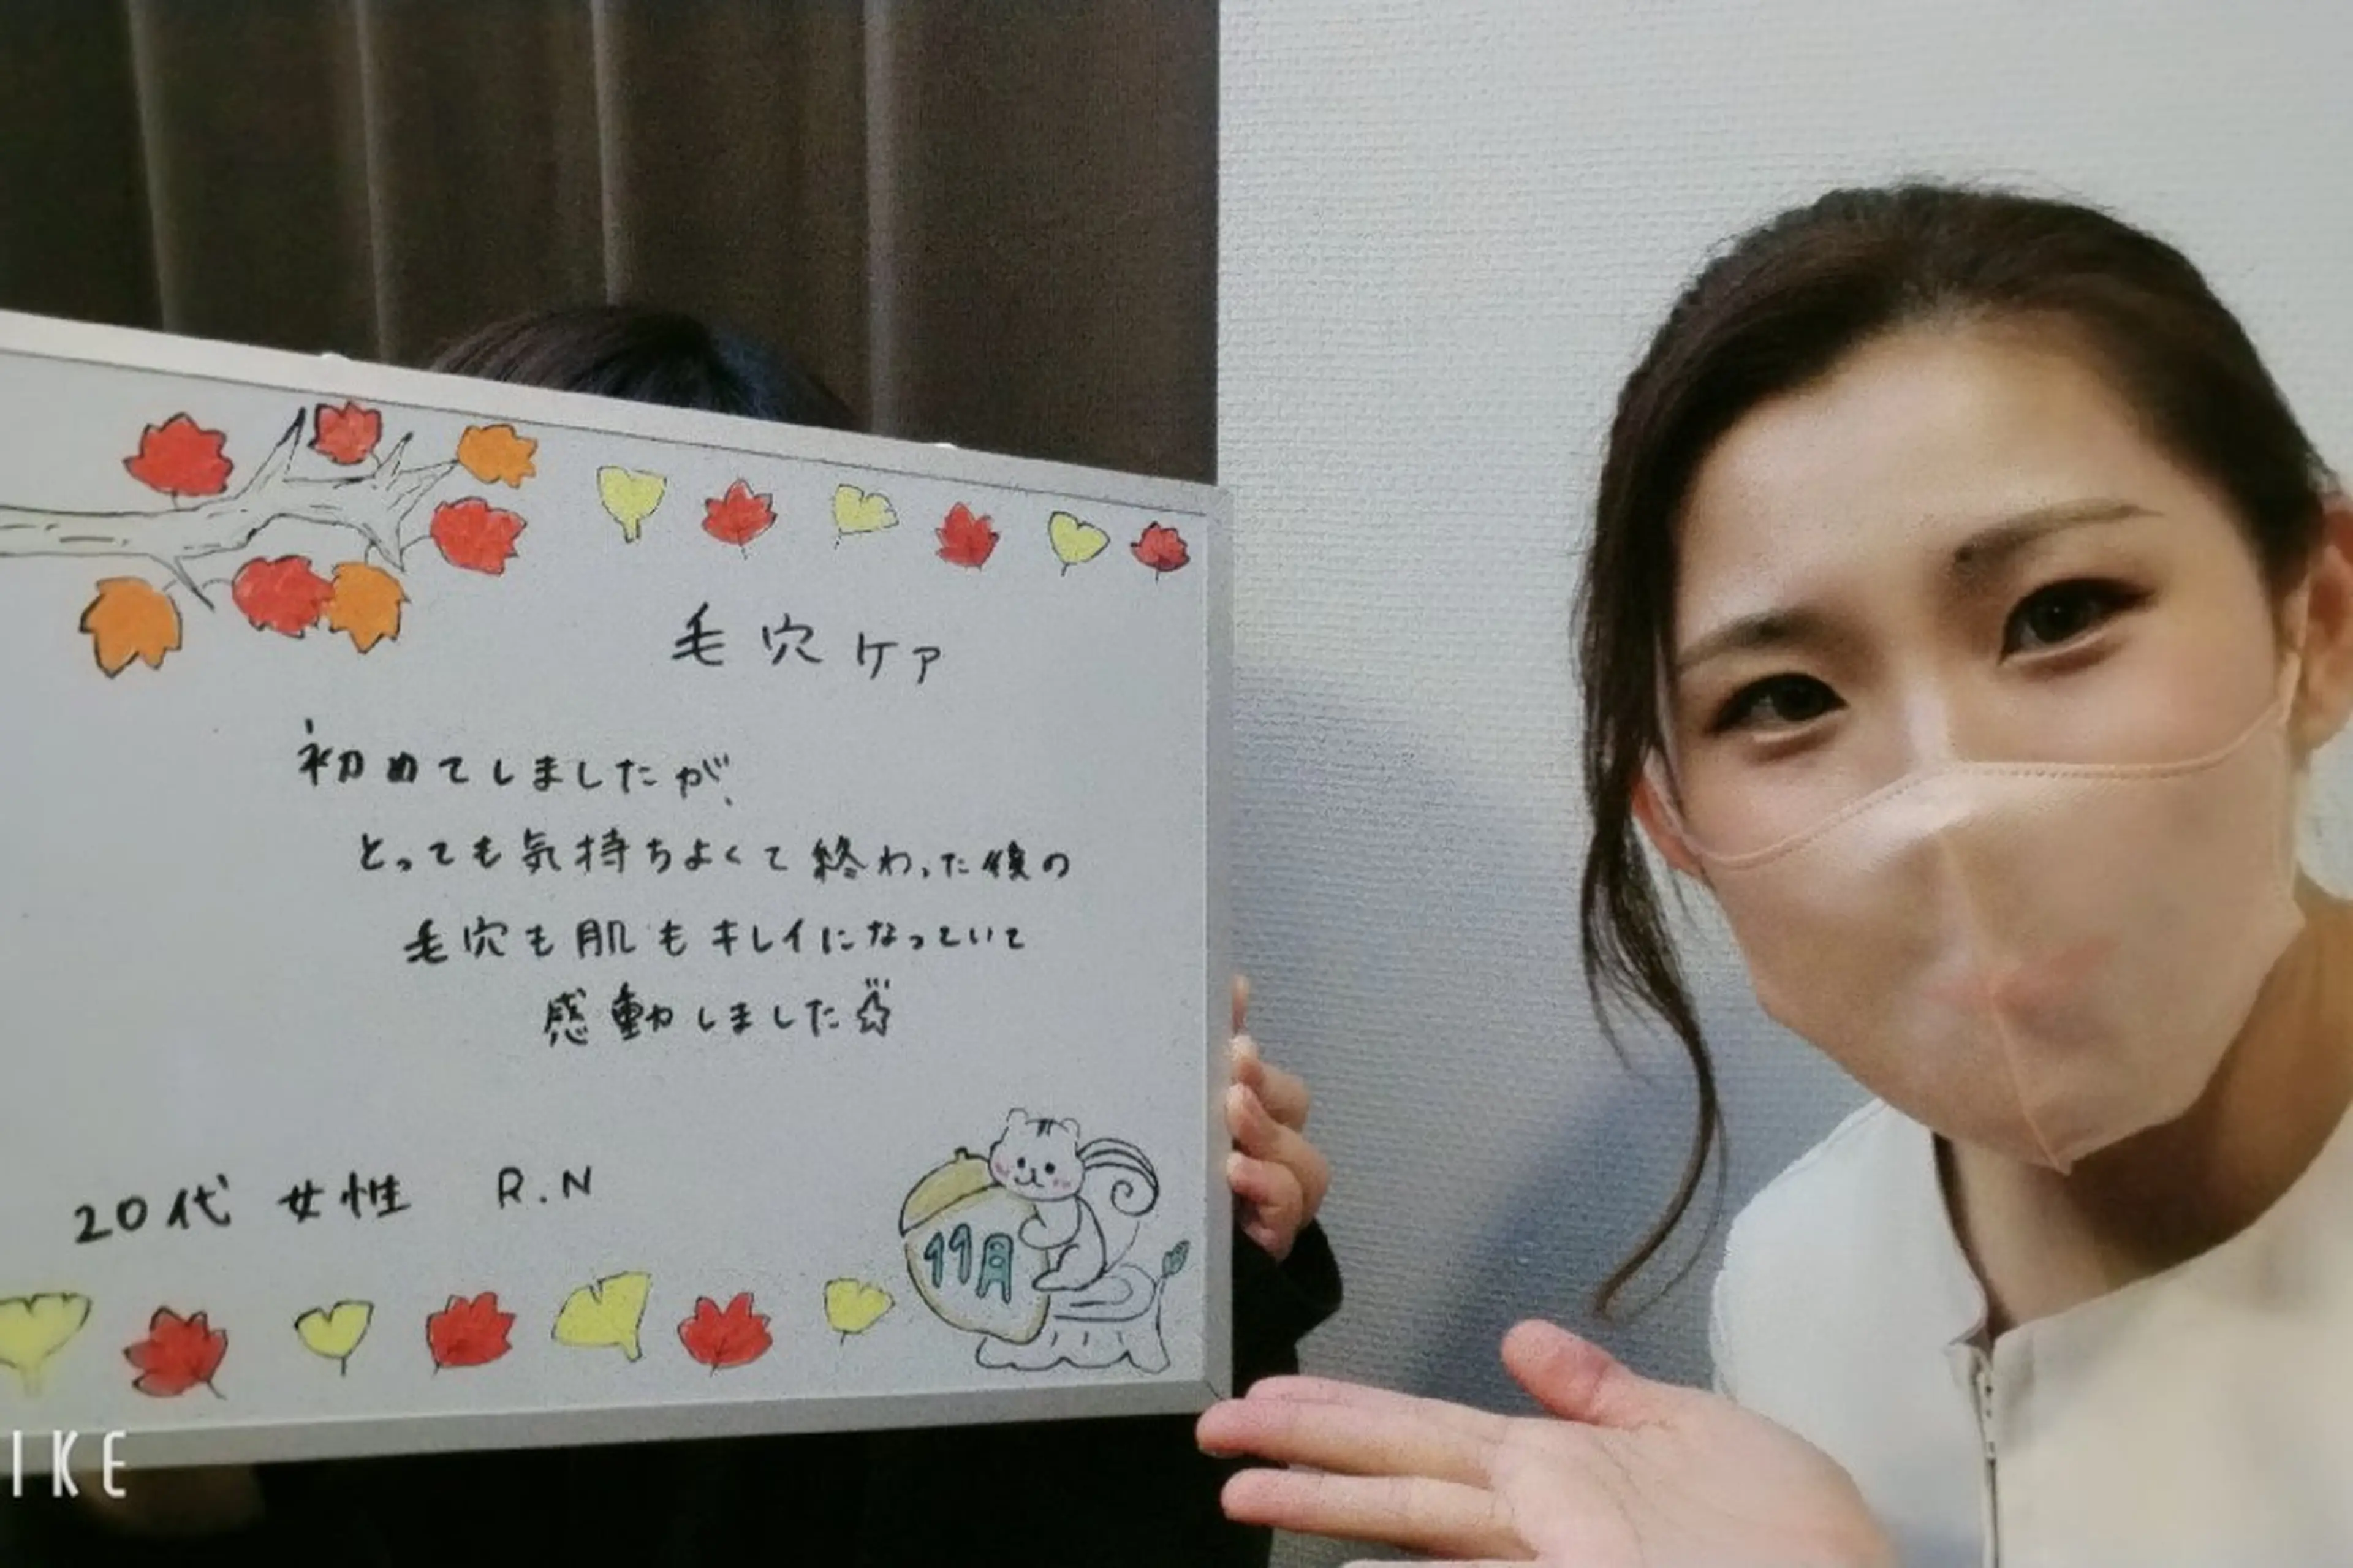 毛穴ケア
初めてしましたが、
とっても気持ちよくて終わった後の
毛穴も肌もキレイになっていて
感動しました
20代 女性 R.N
11月
IKE